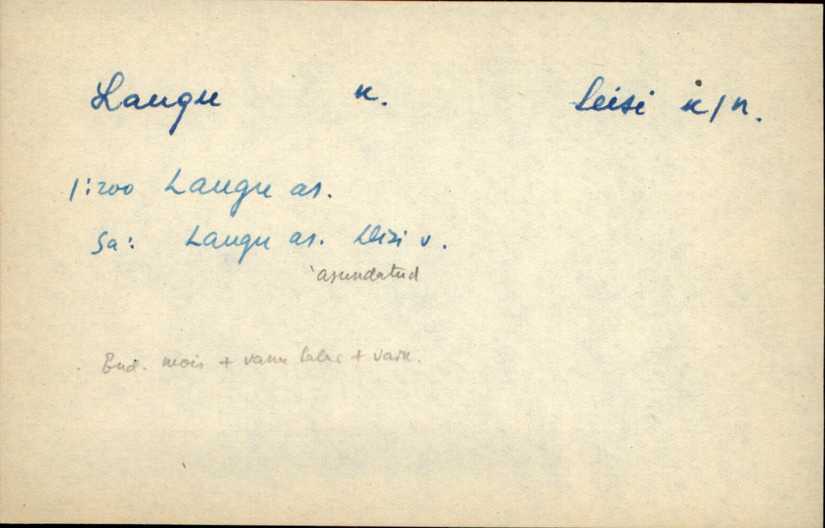 Laugu k. Leisi k/n.
1:200 Laugu as.
Sa: Laugu as. Leisi v.
asundatud
End. mois + vana talu +